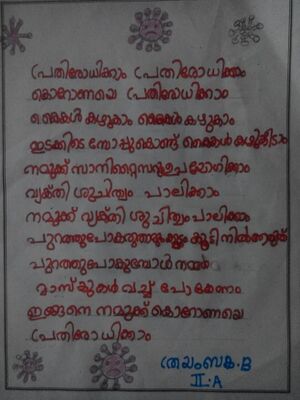 പ്രതിരോധിക്കാം പ്രതിരോധിക്കാം
കൊറോണയെ പ്രതിരോധിക്കാം
കൈകൾ കഴുകാം കൈകൾ കഴുകാം
ഇടക്കിടെ സോപ്പുകൊണ്ട് കൈകൾ കഴുകിടാം
നമുക്ക് സാനിറ്റൈസർ ഉപയോഗിക്കാം
വ്യക്തി ശുചിത്വം പാലിക്കാം
നമുക്ക് വ്യക്തി ശുചിത്വം പാലിക്കാം
പുറത്തുപോകരുത് കൂട്ടം കൂടി നിൽക്കരുത്
പുറത്തുപോകുമ്പോൾ നമ്മൾ
മാസ്കുകൾ വച്ച് പോകേണം
ഇങ്ങനെ നമുക്ക് കൊറോണയെ
പ്രതിരോധിക്കാം
ത്രയംബക.B
II.A